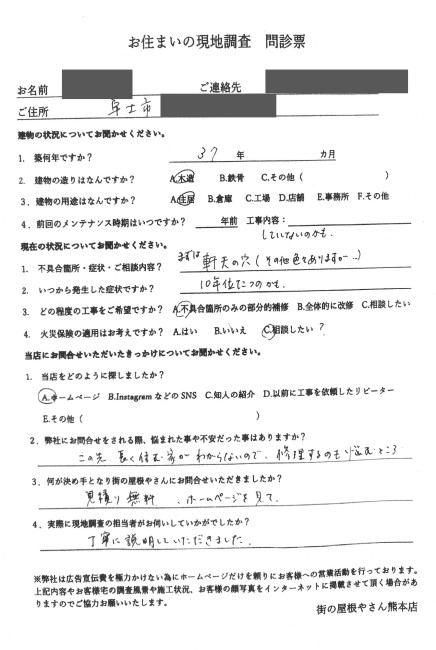 お住まいの現地調査　問診票
お名前　ご連絡先
ご住所　宇土市
建物の状況についてお聞かせください。
1. 築何年ですか？　37　年　カ月
2. 建物の造りはなんですか？　A.木造　B.鉄骨　C.その他（　）
3. 建物の用途はなんですか？　A.住居　B.倉庫　C.工場　D.店舗　E.事務所　F.その他
4. 前回のメンテナンス時期はいつですか？　年前　工事内容：
していないのかも.
現在の状況についてお聞かせください。
1. 不具合箇所・症状・ご相談内容？　まずは　軒天の穴（その他色々ありますが…）
2. いつから発生した症状ですか？　10年位たつのかも.
3. どの程度の工事をご希望ですか？　A.不具合箇所のみの部分的補修　B.全体的に改修　C.相談したい
4. 火災保険の適用はお考えですか？　A.はい　B.いいえ　C.相談したい？
当店にお問合せいただいたきっかけについてお聞かせください。
1. 当店をどのように探しましたか？
A.ホームページ　B.Instagram などの SNS　C.知人の紹介　D.以前に工事を依頼したリピーター
E.その他（　）
2. 弊社にお問合せをされる際、悩まれた事や不安だった事はありますか？
この先　長く住む家かわからないので、修理するのも悩むところ
3. 何が決め手となり街の屋根やさんにお問合せいただきましたか？
見積り無料　、ホームページを見て.
4. 実際に現地調査の担当者がお伺いしていかがでしたか？
丁寧に説明していただきました.
※弊社は広告宣伝費を極力かけない為にホームページだけを頼りにお客様への営業活動を行っております。
上記内容やお客様宅の調査風景や施工状況、お客様の顔写真をインターネットに掲載させて頂く場合があ
りますのでご協力お願いいたします。
街の屋根やさん熊本店